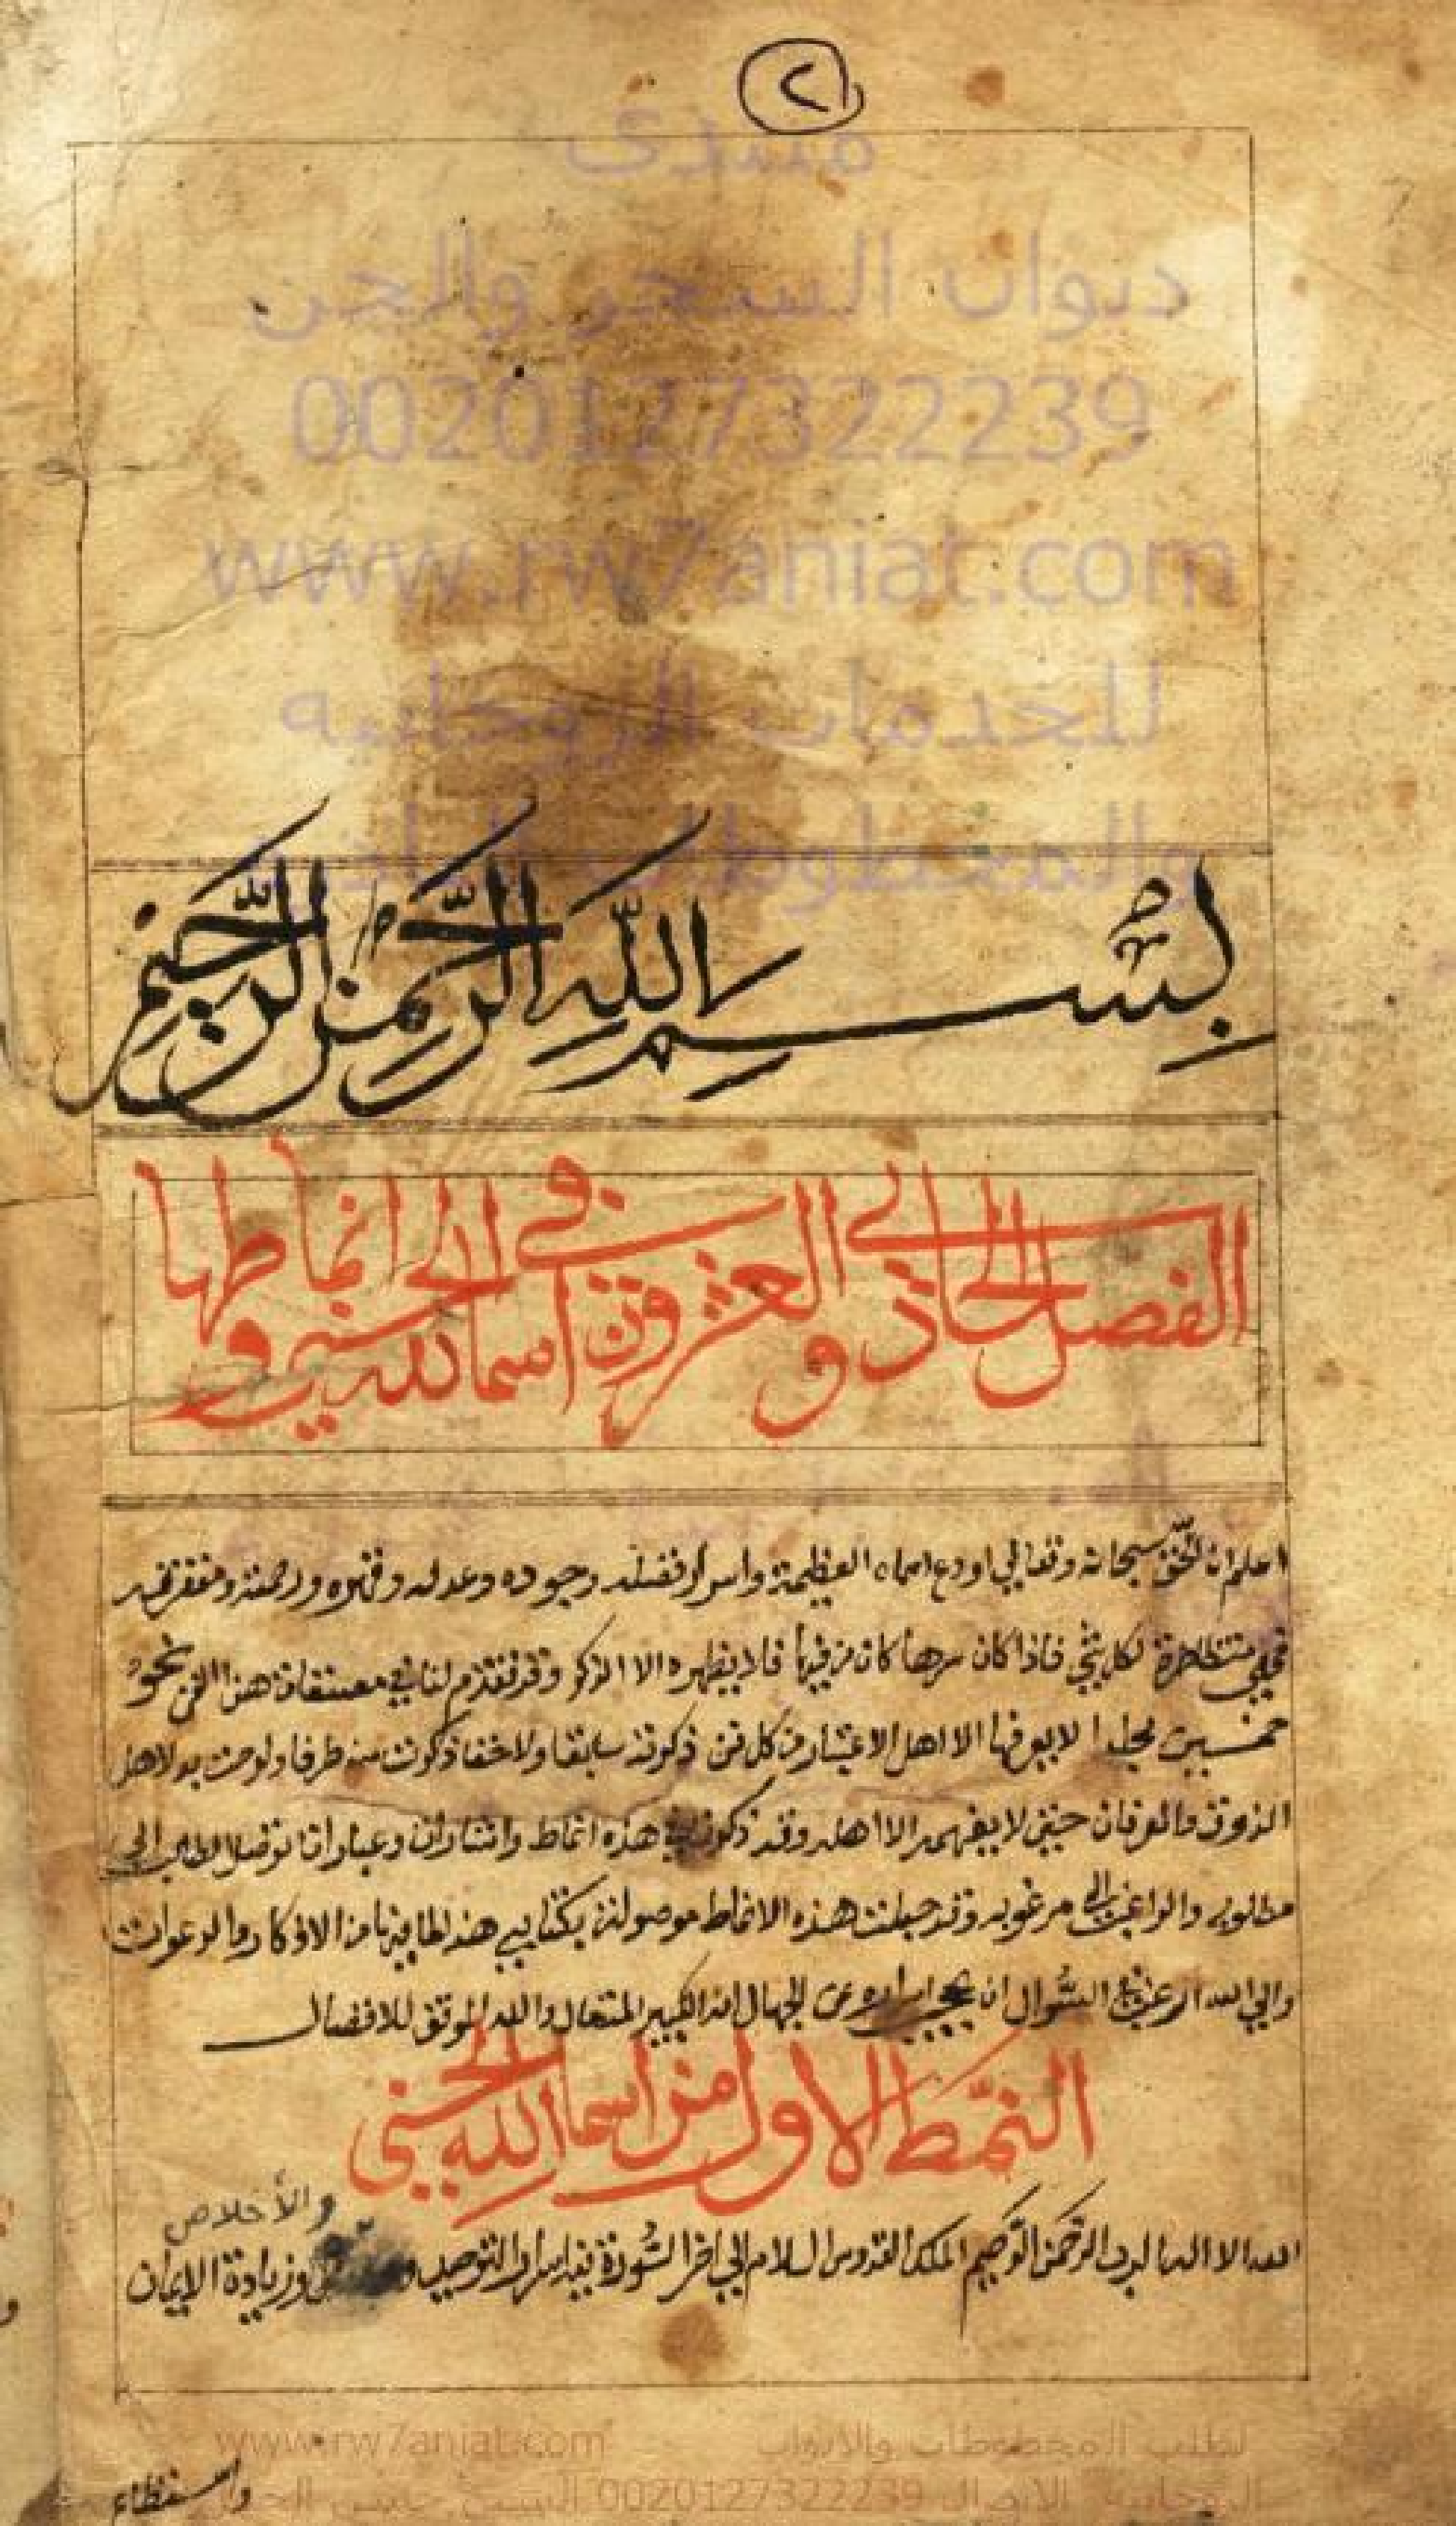 ٢١
منتدى
ديوان السحر والجن
0020127322239
www.rw7aniat.com
للخدمات الروحانيه
والمخطوطات
بسم الله الرحمن الرحيم
الفصل الحادي والعشرون في اسما الله الحسنى وانماطها
اعلم ان الحق سبحانه وتعالى اودع اسماه العظيمة واسرار فضله وجوده وعدله وقهره ورحمته
فهي متظاهرة لكل شي فاذا كان سرها كامن فيها فلا يظهره الا الذكر وقد تقدم لنا في مصنفات هذا الفن نحو
خمسين مجلدا لا يعرفها الا اهل الاعتبار من كل فن ذكرته سابقا ولاحقا ذكرت منه طرفا ولوحت به لاهل
الذوق والعرفان حتى لا يفهمه الا اهله وقد ذكرت في هذه انماط واشارات وعبارات توصل الطالب الى
مطلوبه والراغب الى مرغوبه وقد جعلت هذه الانماط موصولة بكتابي هذا لما فيها من الاذكار والدعوات
والى الله ارغب في السؤال ان يحجب اسراره عن الجهال انه الكبير المتعال والله الموفق للافضال
النمط الاول من اسما الله الحسنى
والأخلاص
الله الا اله الرب الرحمن الرحيم الملك القدوس السلام الى اخر السورة فيه اسرار التوحيد وزيادة الايمان
www.rw7aniat.com لطلب المخطوطات والابواب
الروحانية الاتصال 0020127322239 الشيخ